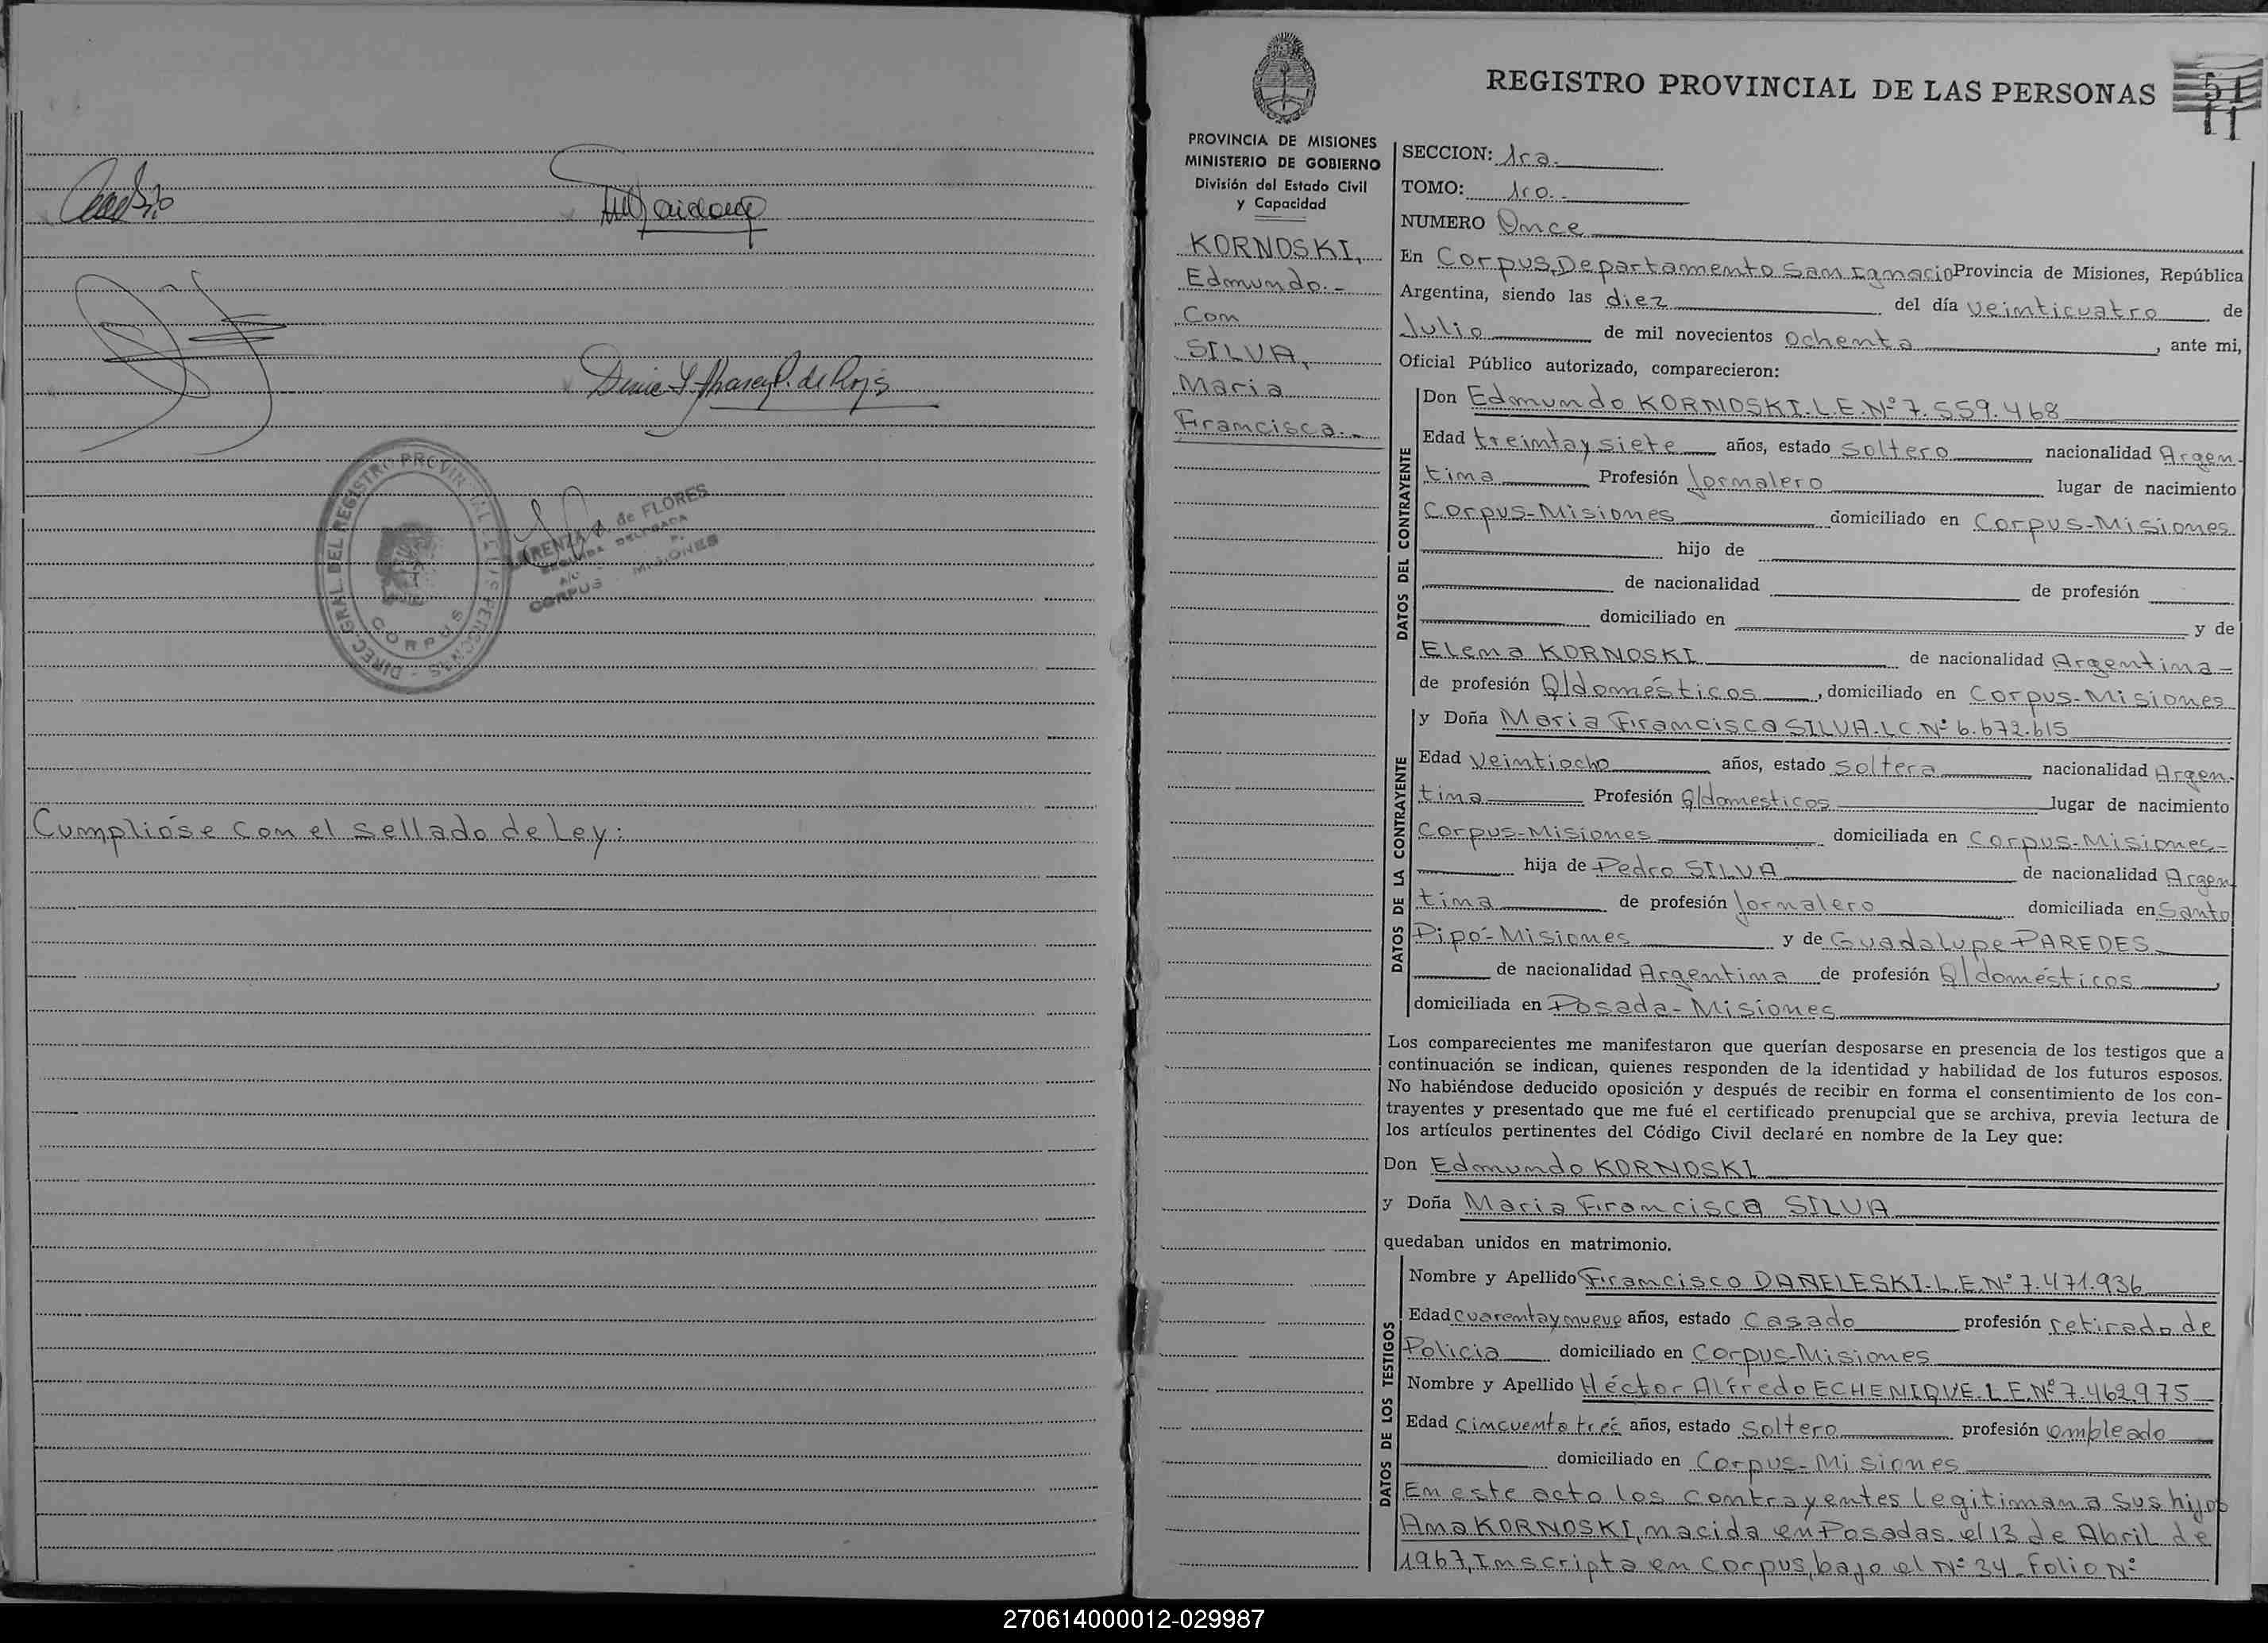 Denic S. Alvarez P. de Rojs
DIREC. GRAL. DEL REGISTRO PROVINCIAL DE LAS PERSONAS
CORPUS
LORENZA A. de FLORES
SEGUNDA DELEGADA
A/C
CORPUS - MISIONES
Cumplióse con el sellado de Ley:
REGISTRO PROVINCIAL DE LAS PERSONAS
51
11
PROVINCIA DE MISIONES
MINISTERIO DE GOBIERNO
División del Estado Civil
y Capacidad
KORNOSKI,
Edmundo.-
Con
SILVA,
Maria
Francisca.-
SECCION: 1ra.
TOMO: 1ro.-
NUMERO Once
En Corpus, Departamento San Ignacio Provincia de Misiones, República
Argentina, siendo las diez del día veinticuatro de
Julio de mil novecientos ochenta, ante mi,
Oficial Público autorizado, comparecieron:
DATOS DEL CONTRAYENTE
Don Edmundo KORNOSKI. L.E.Nº 7.559.468
Edad treinta y siete años, estado soltero nacionalidad Argen-
tina Profesión Jornalero lugar de nacimiento
Corpus-Misiones domiciliado en Corpus-Misiones
hijo de
de nacionalidad de profesión
domiciliado en y de
Elena KORNOSKI de nacionalidad Argentina-
de profesión Q/domésticos, domiciliado en Corpus-Misiones
DATOS DE LA CONTRAYENTE
y Doña Maria Francisca SILVA. L.C.Nº 6.672.615
Edad Veintiocho años, estado soltera nacionalidad Argen-
tina Profesión Q/domesticos lugar de nacimiento
Corpus-Misiones domiciliada en Corpus-Misiones-
hija de Pedro SILVA de nacionalidad Argen
tina de profesión Jornalero domiciliada en Santo
Pipó-Misiones y de Guadalupe PAREDES
de nacionalidad Argentina de profesión Q/domésticos,
domiciliada en Posada-Misiones
Los comparecientes me manifestaron que querían desposarse en presencia de los testigos que a
continuación se indican, quienes responden de la identidad y habilidad de los futuros esposos.
No habiéndose deducido oposición y después de recibir en forma el consentimiento de los con-
trayentes y presentado que me fué el certificado prenupcial que se archiva, previa lectura de
los artículos pertinentes del Código Civil declaré en nombre de la Ley que:
Don Edmundo KORNOSKI
y Doña Maria Francisca SILVA
quedaban unidos en matrimonio.
DATOS DE LOS TESTIGOS
Nombre y Apellido Francisco DAÑELESKI. L.E.Nº 7.471.936
Edad cuarenta y nueve años, estado Casado profesión retirado de
Policia domiciliado en Corpus-Misiones
Nombre y Apellido Héctor Alfredo ECHENIQUE. L.E.Nº 7.462.975
Edad Cincuenta tres años, estado soltero profesión empleado
domiciliado en Corpus-Misiones
En este acto los contrayentes legitiman a sus hijos
Ana KORNOSKI, nacida en Posadas. el 13 de Abril de
1967, Inscripta en Corpus, bajo el Nº 34-Folio Nº
270614000012-029987